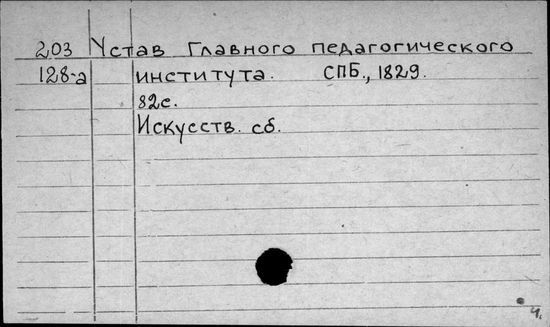 203 Устав Главного педагогического
128-а института. СПБ., 1829.
82с.
Искусств. сб.
ч.